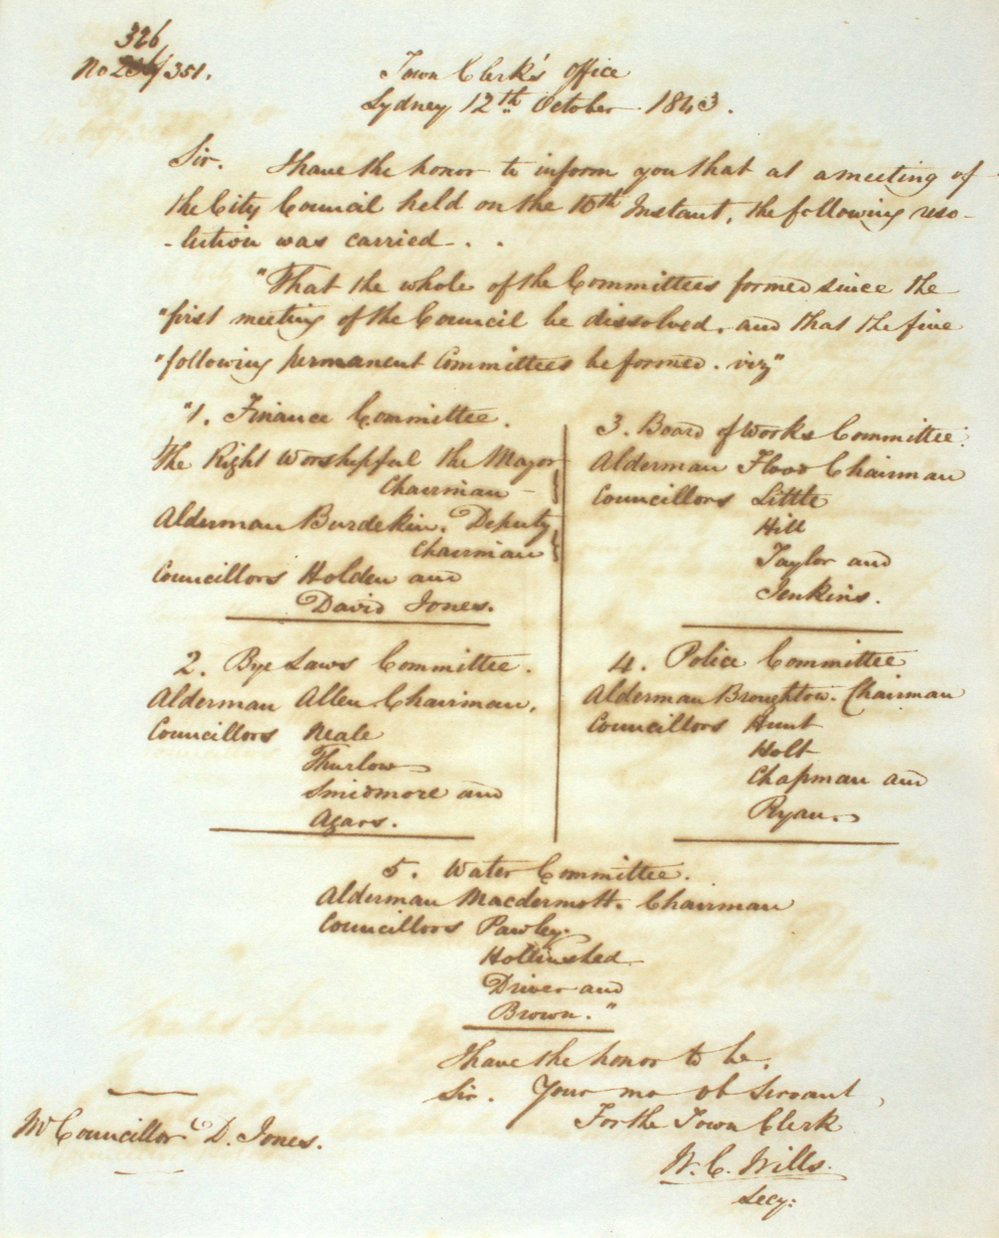 326
No /351.
Town Clerk's Office
Sydney 12th October 1843.
Sir. I have the honor to inform you that at a meeting of
the City Council held on the 10th Instant, the following reso-
-lution was carried - . .
"That the whole of the Committees formed since the
"first meeting of the Council be dissolved, and that the five
"following permanent Committees be formed. viz"
"1. Finance Committee.
The Right Worshipful the Mayor
Chairman -
Alderman Burdekin. Deputy
Chairman
Councillors Holden and
David Jones.
2. Bye Laws Committee.
Alderman Allen Chairman.
Councillors Neale
Thurlow
Smidmore and
Agars.
3. Board of Works Committee.
Alderman Flood Chairman
Councillors Little
Hill
Taylor and
Jenkins.
4. Police Committee
Alderman Broughton. Chairman
Councillors Hunt
Holt
Chapman and
Ryan.
5. Water Committee.
Alderman Macdermott. Chairman
Councillors Pawley.
Hollinshed
Driver and
Brown."
I have the honor to be,
Sir. Your mo ob Servant,
For the Town Clerk
W. C. Wills.
Secy:
Mr Councillor D. Jones.